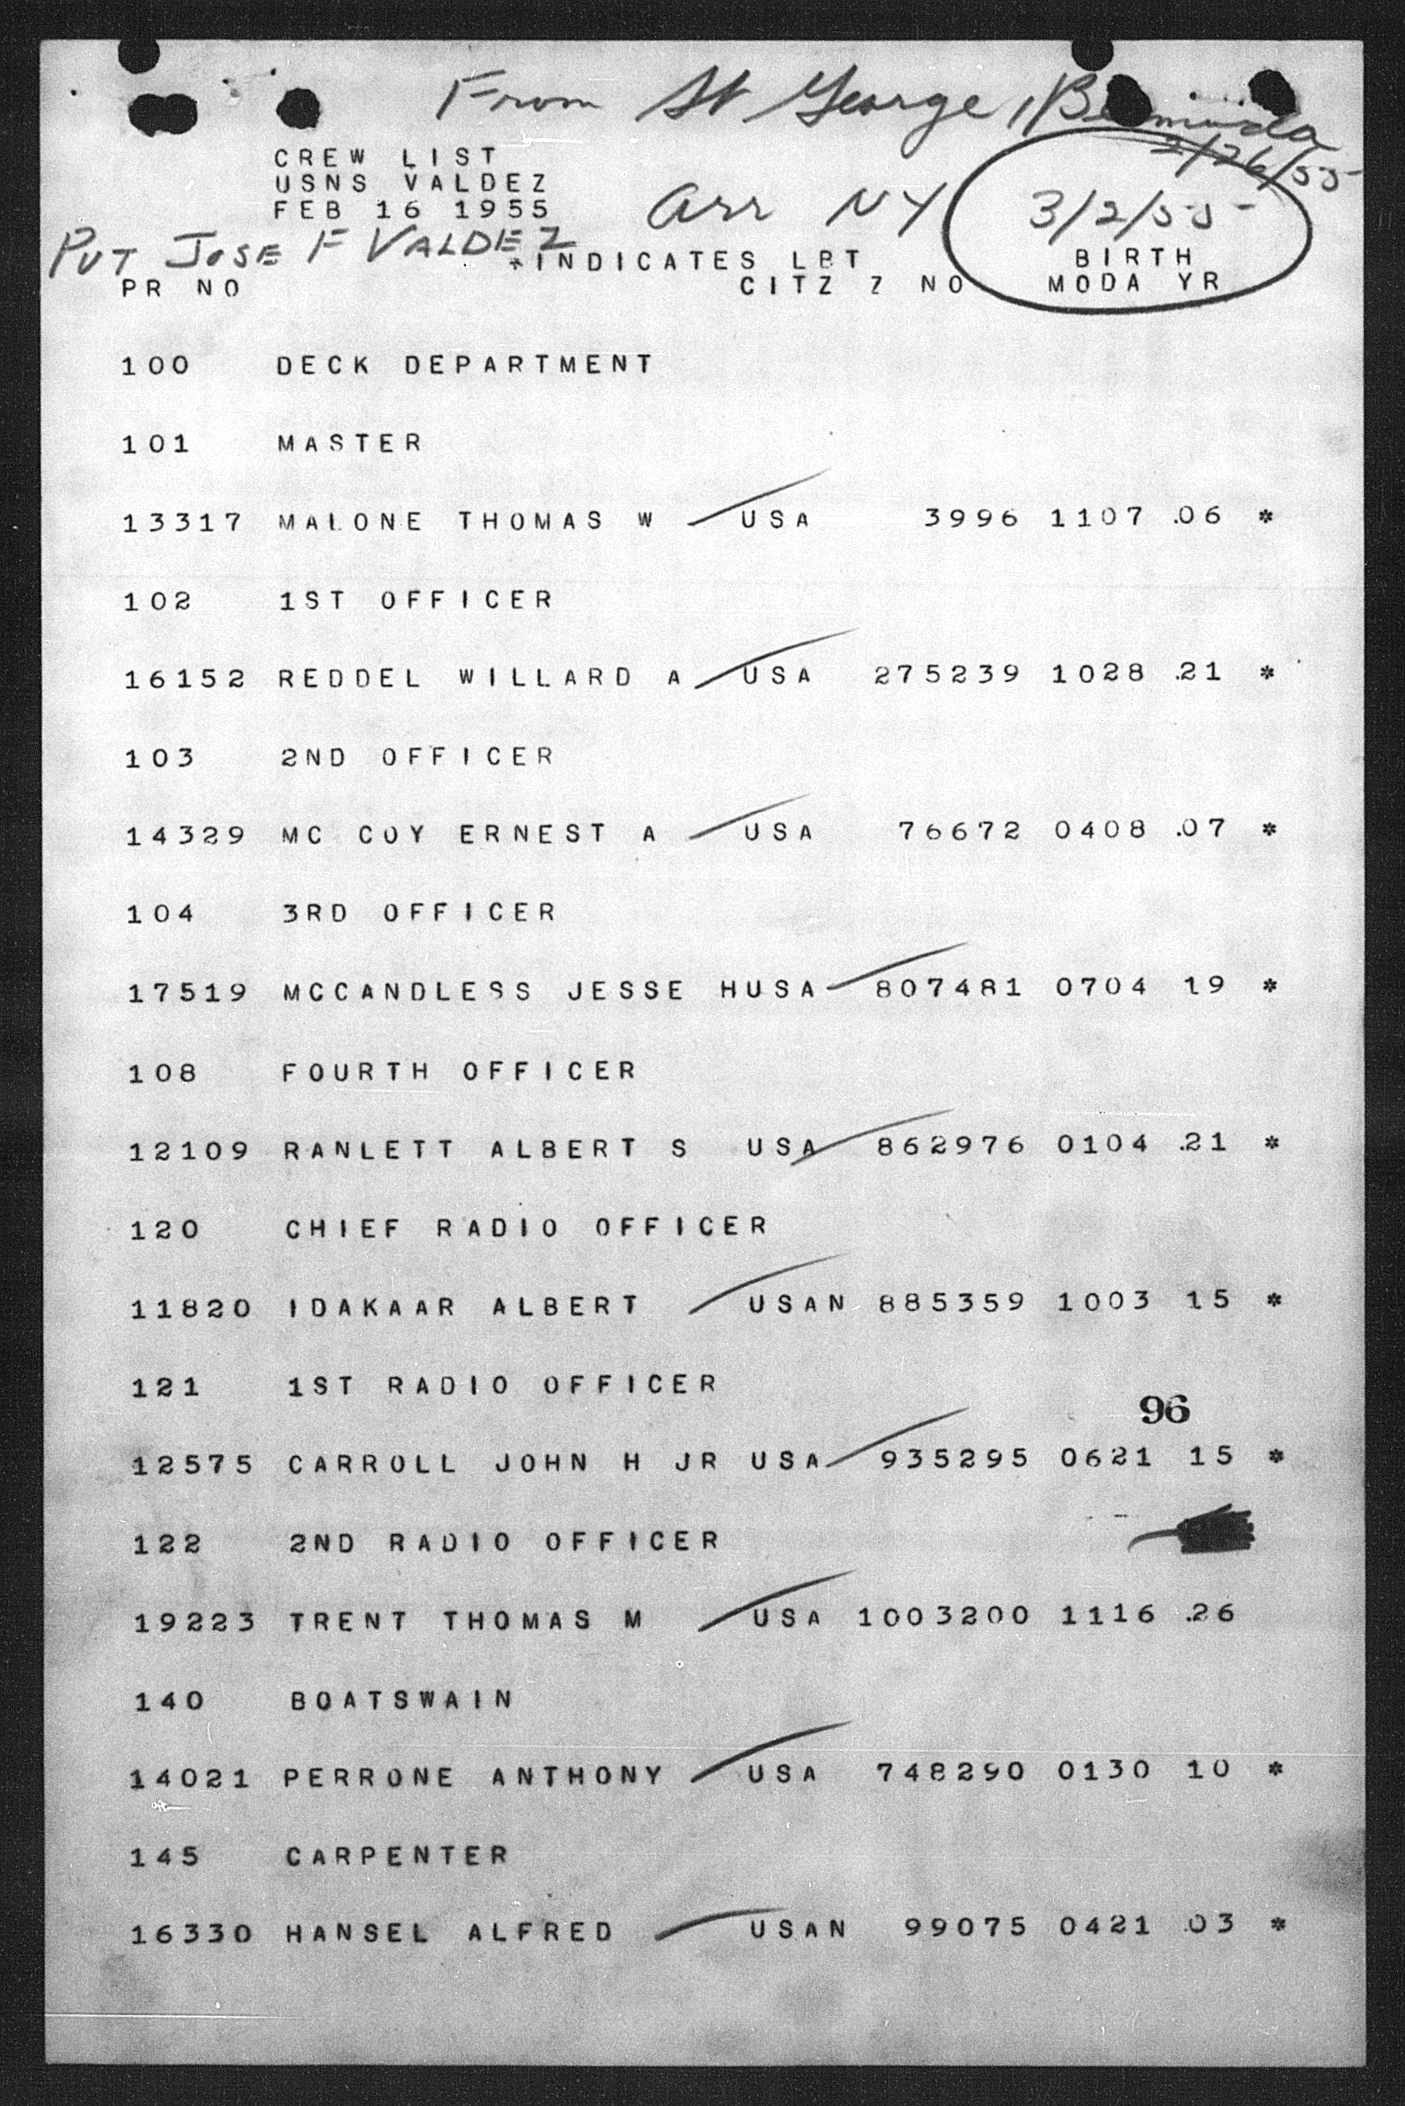 From St George, Bermuda
2/26/55
CREW LIST
USNS VALDEZ
FEB 16 1955
Arr NY 3/2/55
PVT JOSE F VALDEZ
*INDICATES LBT BIRTH
PR NO CITZ Z NO MODA YR
100 DECK DEPARTMENT
101 MASTER
13317 MALONE THOMAS W USA 3996 1107 .06 *
102 1ST OFFICER
16152 REDDEL WILLARD A USA 275239 1028 .21 *
103 2ND OFFICER
14329 MC COY ERNEST A USA 76672 0408 .07 *
104 3RD OFFICER
17519 MCCANDLESS JESSE HUSA 807481 0704 19 *
108 FOURTH OFFICER
12109 RANLETT ALBERT S USA 862976 0104 .21 *
120 CHIEF RADIO OFFICER
11820 IDAKAAR ALBERT USAN 885359 1003 15 *
121 1ST RADIO OFFICER
96
12575 CARROLL JOHN H JR USA 935295 0621 15 *
122 2ND RADIO OFFICER
19223 TRENT THOMAS M USA 1003200 1116 .26
140 BOATSWAIN
14021 PERRONE ANTHONY USA 748290 0130 10 *
145 CARPENTER
16330 HANSEL ALFRED USAN 99075 0421 .03 *